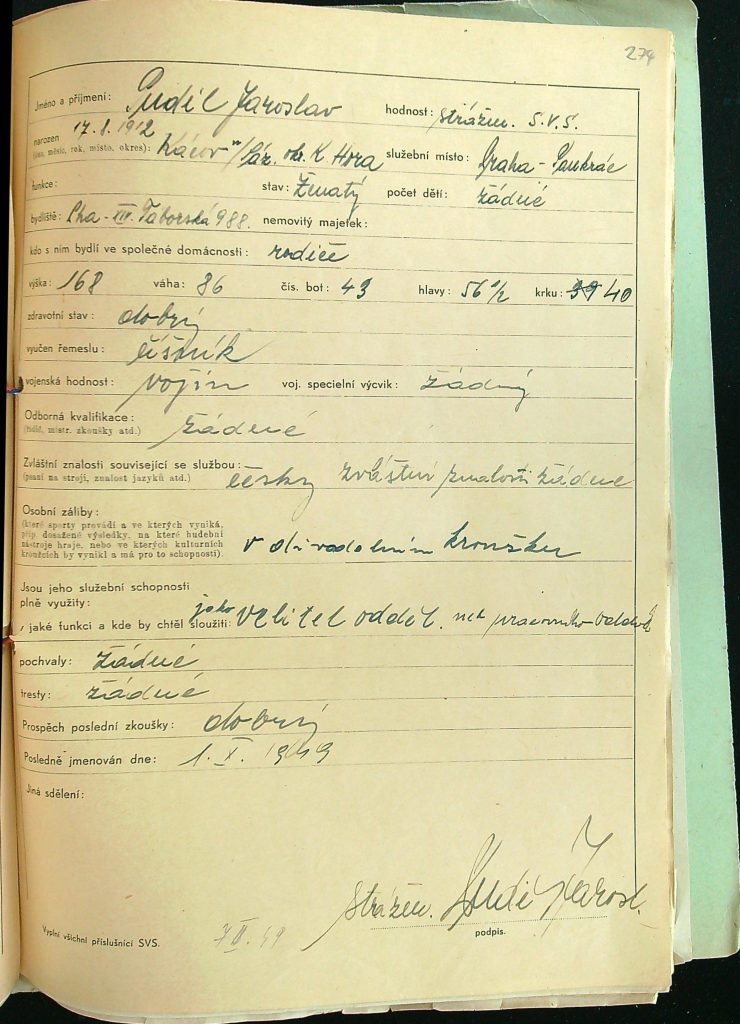 274
Jméno a příjmení: Pudil Jaroslav hodnost: strážm. S.V.S.
narozen 17.8.1912
(den, měsíc, rok, místo, okres): Kácov n/Sáz. okr. K. Hora služební místo: Praha - Pankrác
funkce: stav: ženatý počet dětí: žádné
bydliště: Pha - XIV. Táborská 988. nemovitý majetek:
kdo s ním bydlí ve společné domácnosti: rodiče
výška: 168 váha: 86 čís. bot: 43 hlavy: 56 1/2 krku: 39 40
zdravotní stav: dobrý
vyučen řemeslu: číšník
vojenská hodnost: vojín voj. specielní výcvik: žádný
Odborná kvalifikace: žádné
(řidič, mistr. zkoušky atd.)
Zvláštní znalosti související se službou: česky zvláštní znalosti žádné
(psaní na stroji, znalost jazyků atd.)
Osobní záliby:
(které sporty provádí a ve kterých vyniká,
příp. dosažené výsledky, na které hudební
nástroje hraje, nebo ve kterých kulturních
kroužcích by vynikl a má pro to schopnosti). v divadelním kroužku
Jsou jeho služební schopnosti
plně využity:
v jaké funkci a kde by chtěl sloužiti: jako velitel odděl.
pochvaly: žádné
tresty: žádné
Prospěch poslední zkoušky: dobrý
Posledně jmenován dne: 1. X. 1949
Jiná sdělení:
strážm. Pudil Jarosl.
podpis.
Vyplní všichni příslušníci SVS.